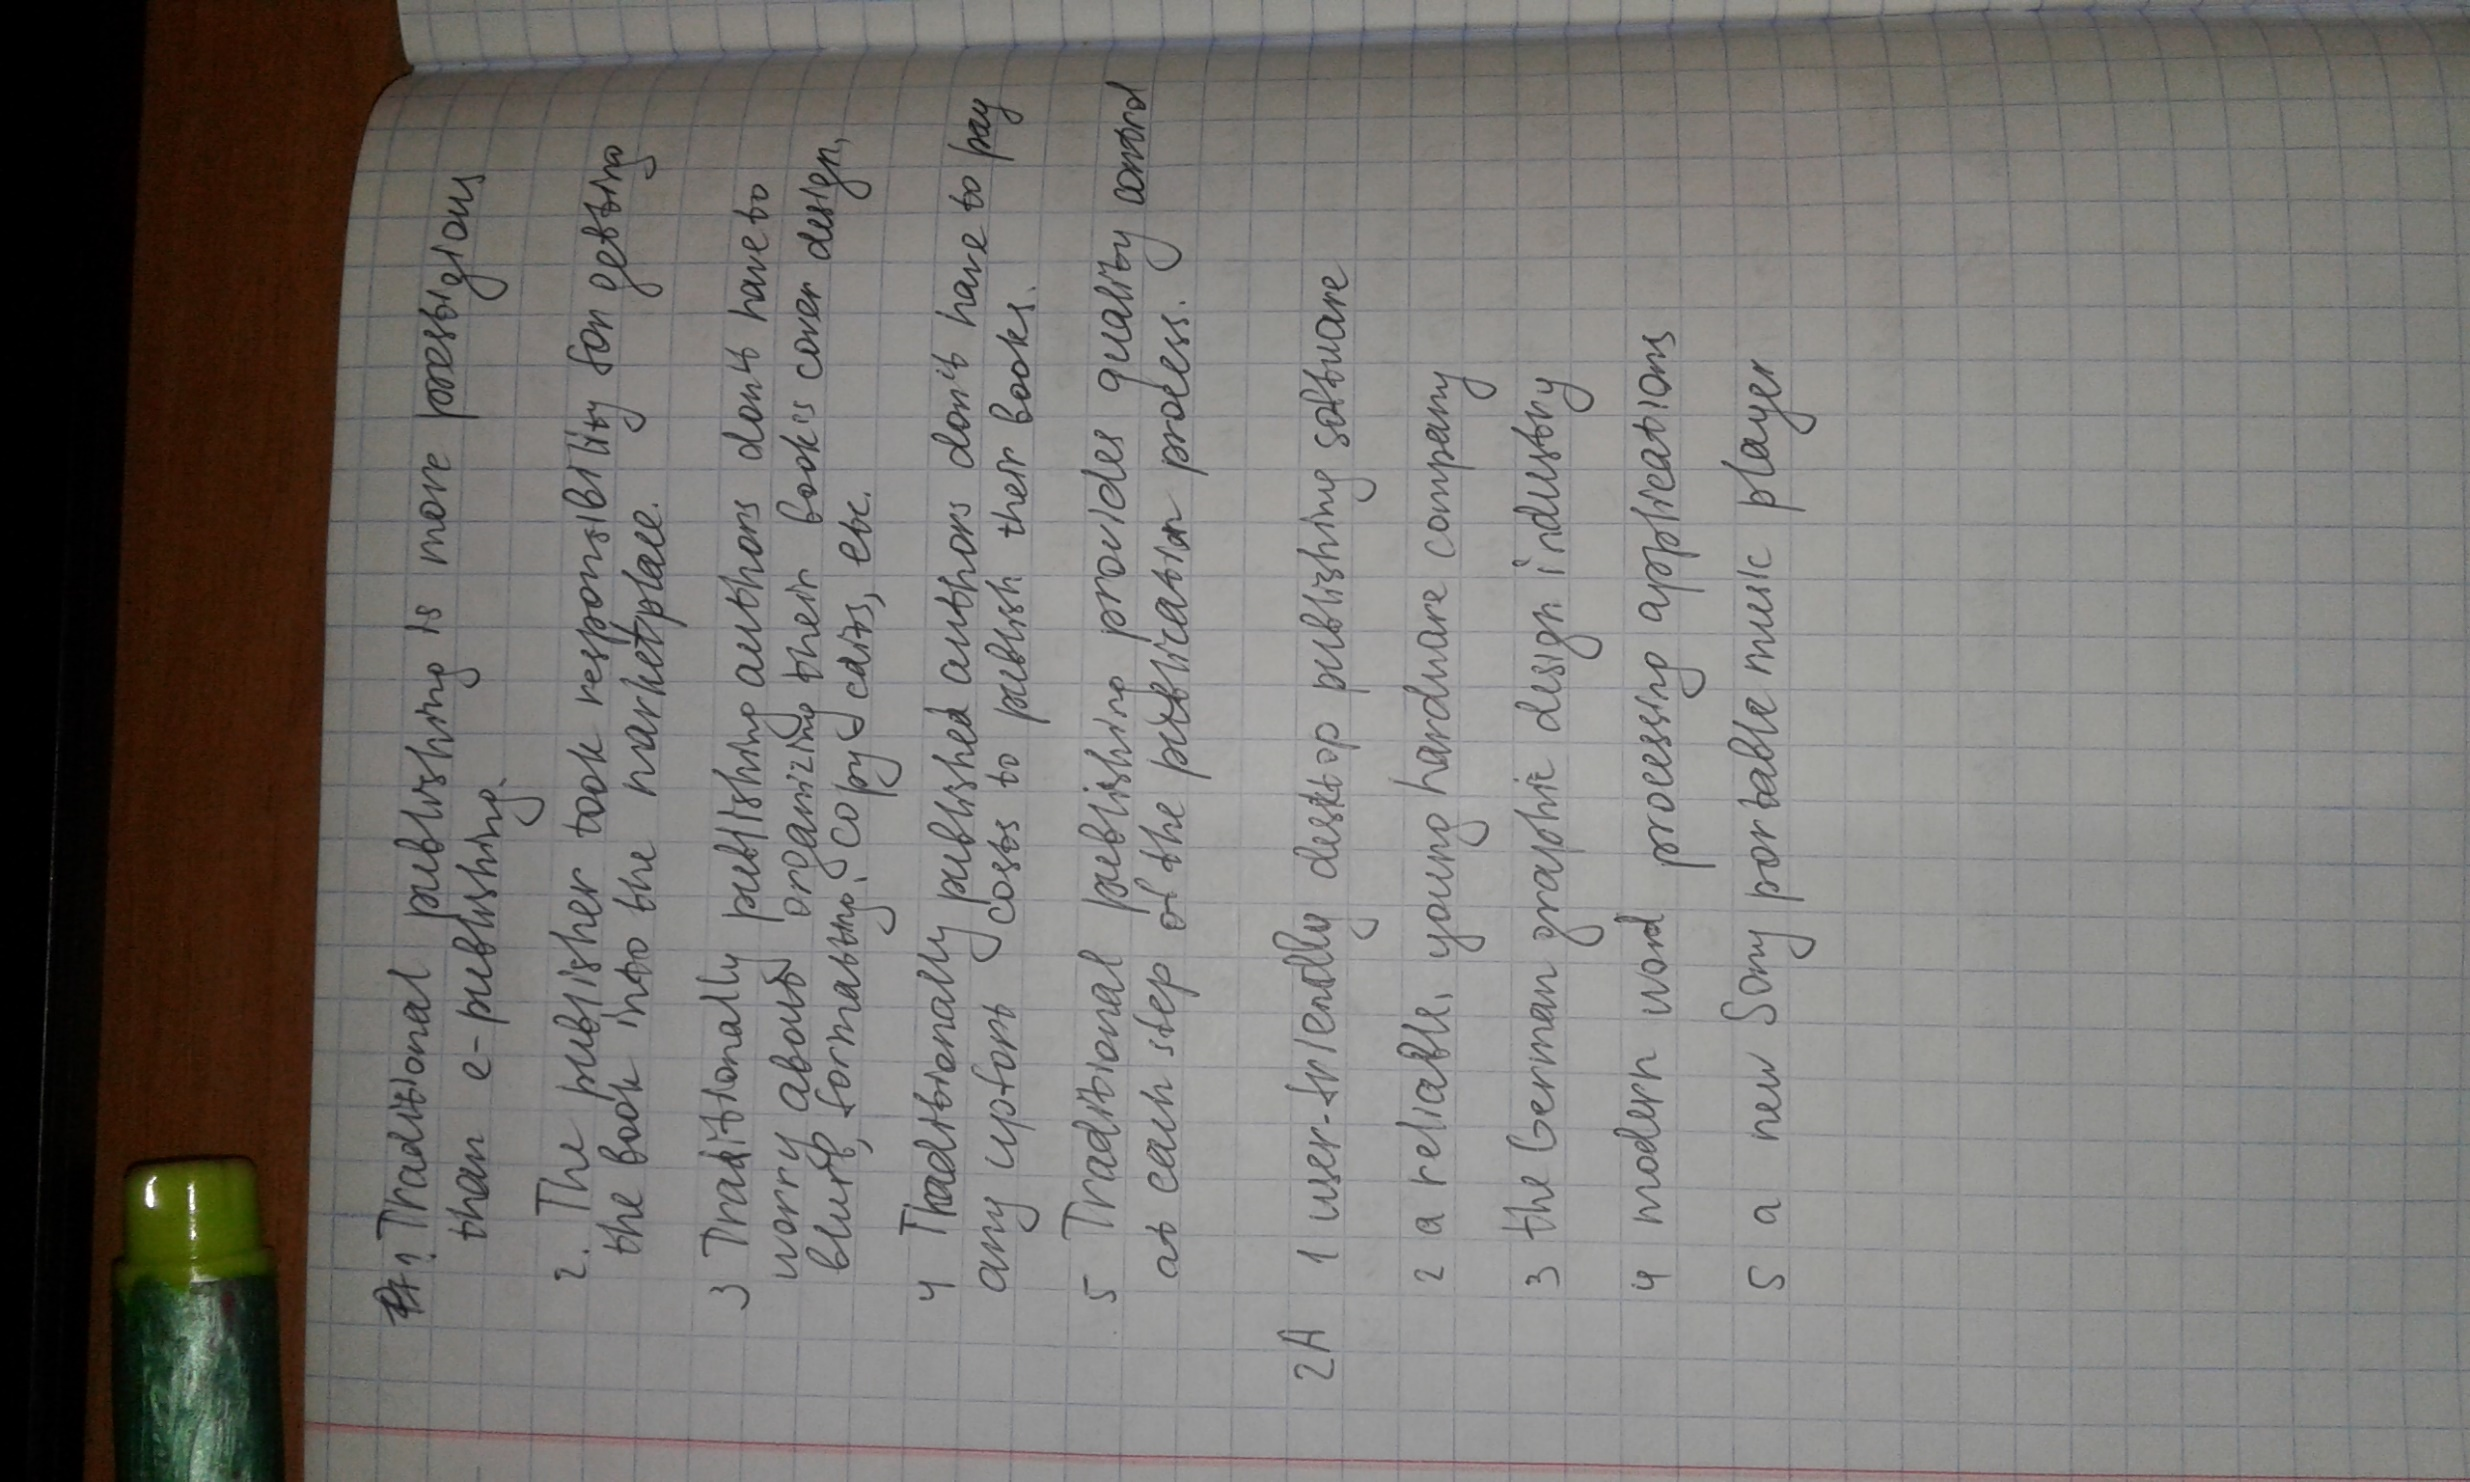 1. Traditional publishing is more prestigious
than e-publishing.
2. The publisher took responsibility for getting
the book into the marketplace.
3 Traditionally publishing authors don't have to
worry about organizing their book's cover design,
blurb, formatting, copy edits, etc.
4 Traditionally published authors don't have to pay
any upfont costs to publish their books.
5 Traditional publishing provides quality control
at each step of the publication process.
2A 1 user-friendly desktop publishing software
2 a reliable, young hardware company
3 the German graphic design industry
4 modern word processing applications
5 a new Sony portable music player